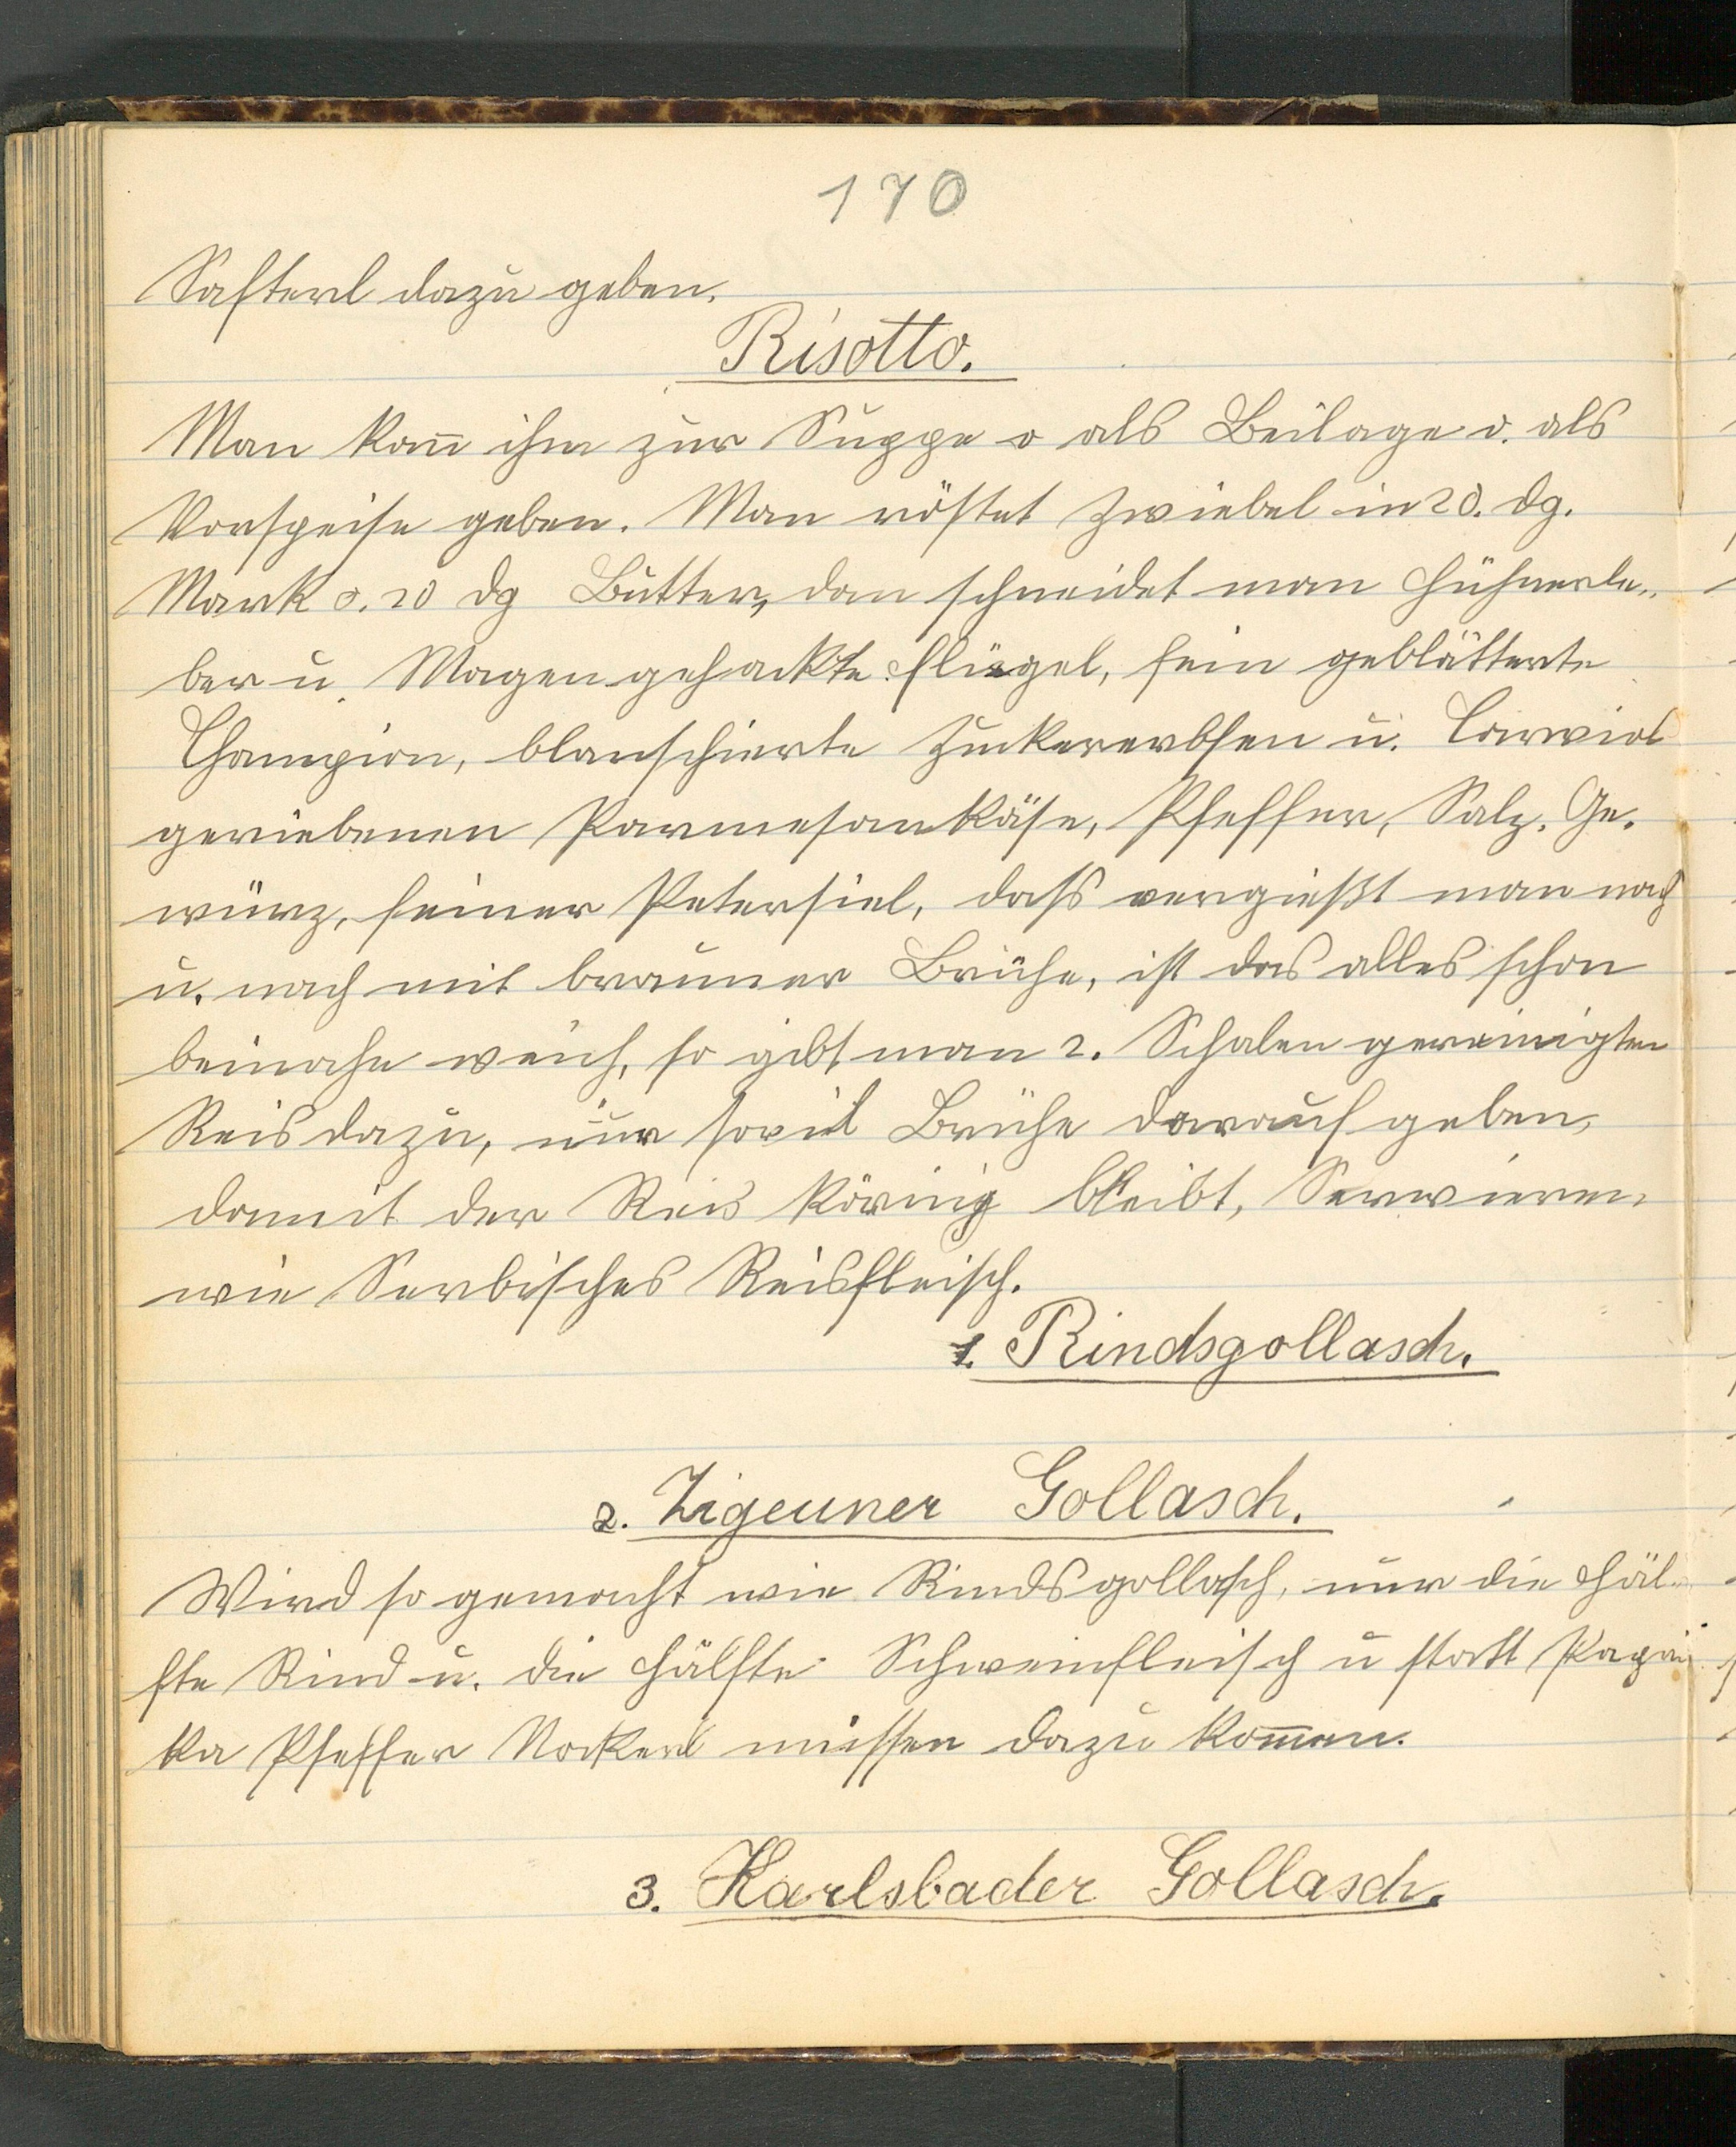 170
Safterl dazu geben.
Risotto.
Man kan̄ ihm zur Suppe o als Beilage o. als
Vorspeise geben. Man röstet Zwiebel in 20. dg.
Mark o. 20 dg Butter, dan schneidet man Hühnerle„
ber u. Magen gehackte Flügel, fein geblätterte
Champion, blanschierte Zuckererbsen u. Carviol
geriebenen Parmesankäse, Pfeffer, Salz, Ge.
würz, feiner Petersiel, dass vergießt man nach
u. nach mit brauner Brühe, ist das alles schon
beinahe weich, so gibt man 2. Schalen gereinigten
Reis dazu, nur soviel Brühe darauf geben,
damit der Reis körnig bleibt, Serwieren
wie Serbisches Reisfleisch.
1. Rindsgollasch.
2. Zigeuner Gollasch.
Wird so gemacht wie Rindsgollasch, nur die Häl„
fte Rind u. die Hälfte Schweinfleisch u statt Papri
ka Pfeffer Nockerl müssen dazu kom̄en.
3. Karlsbader Gollasch.